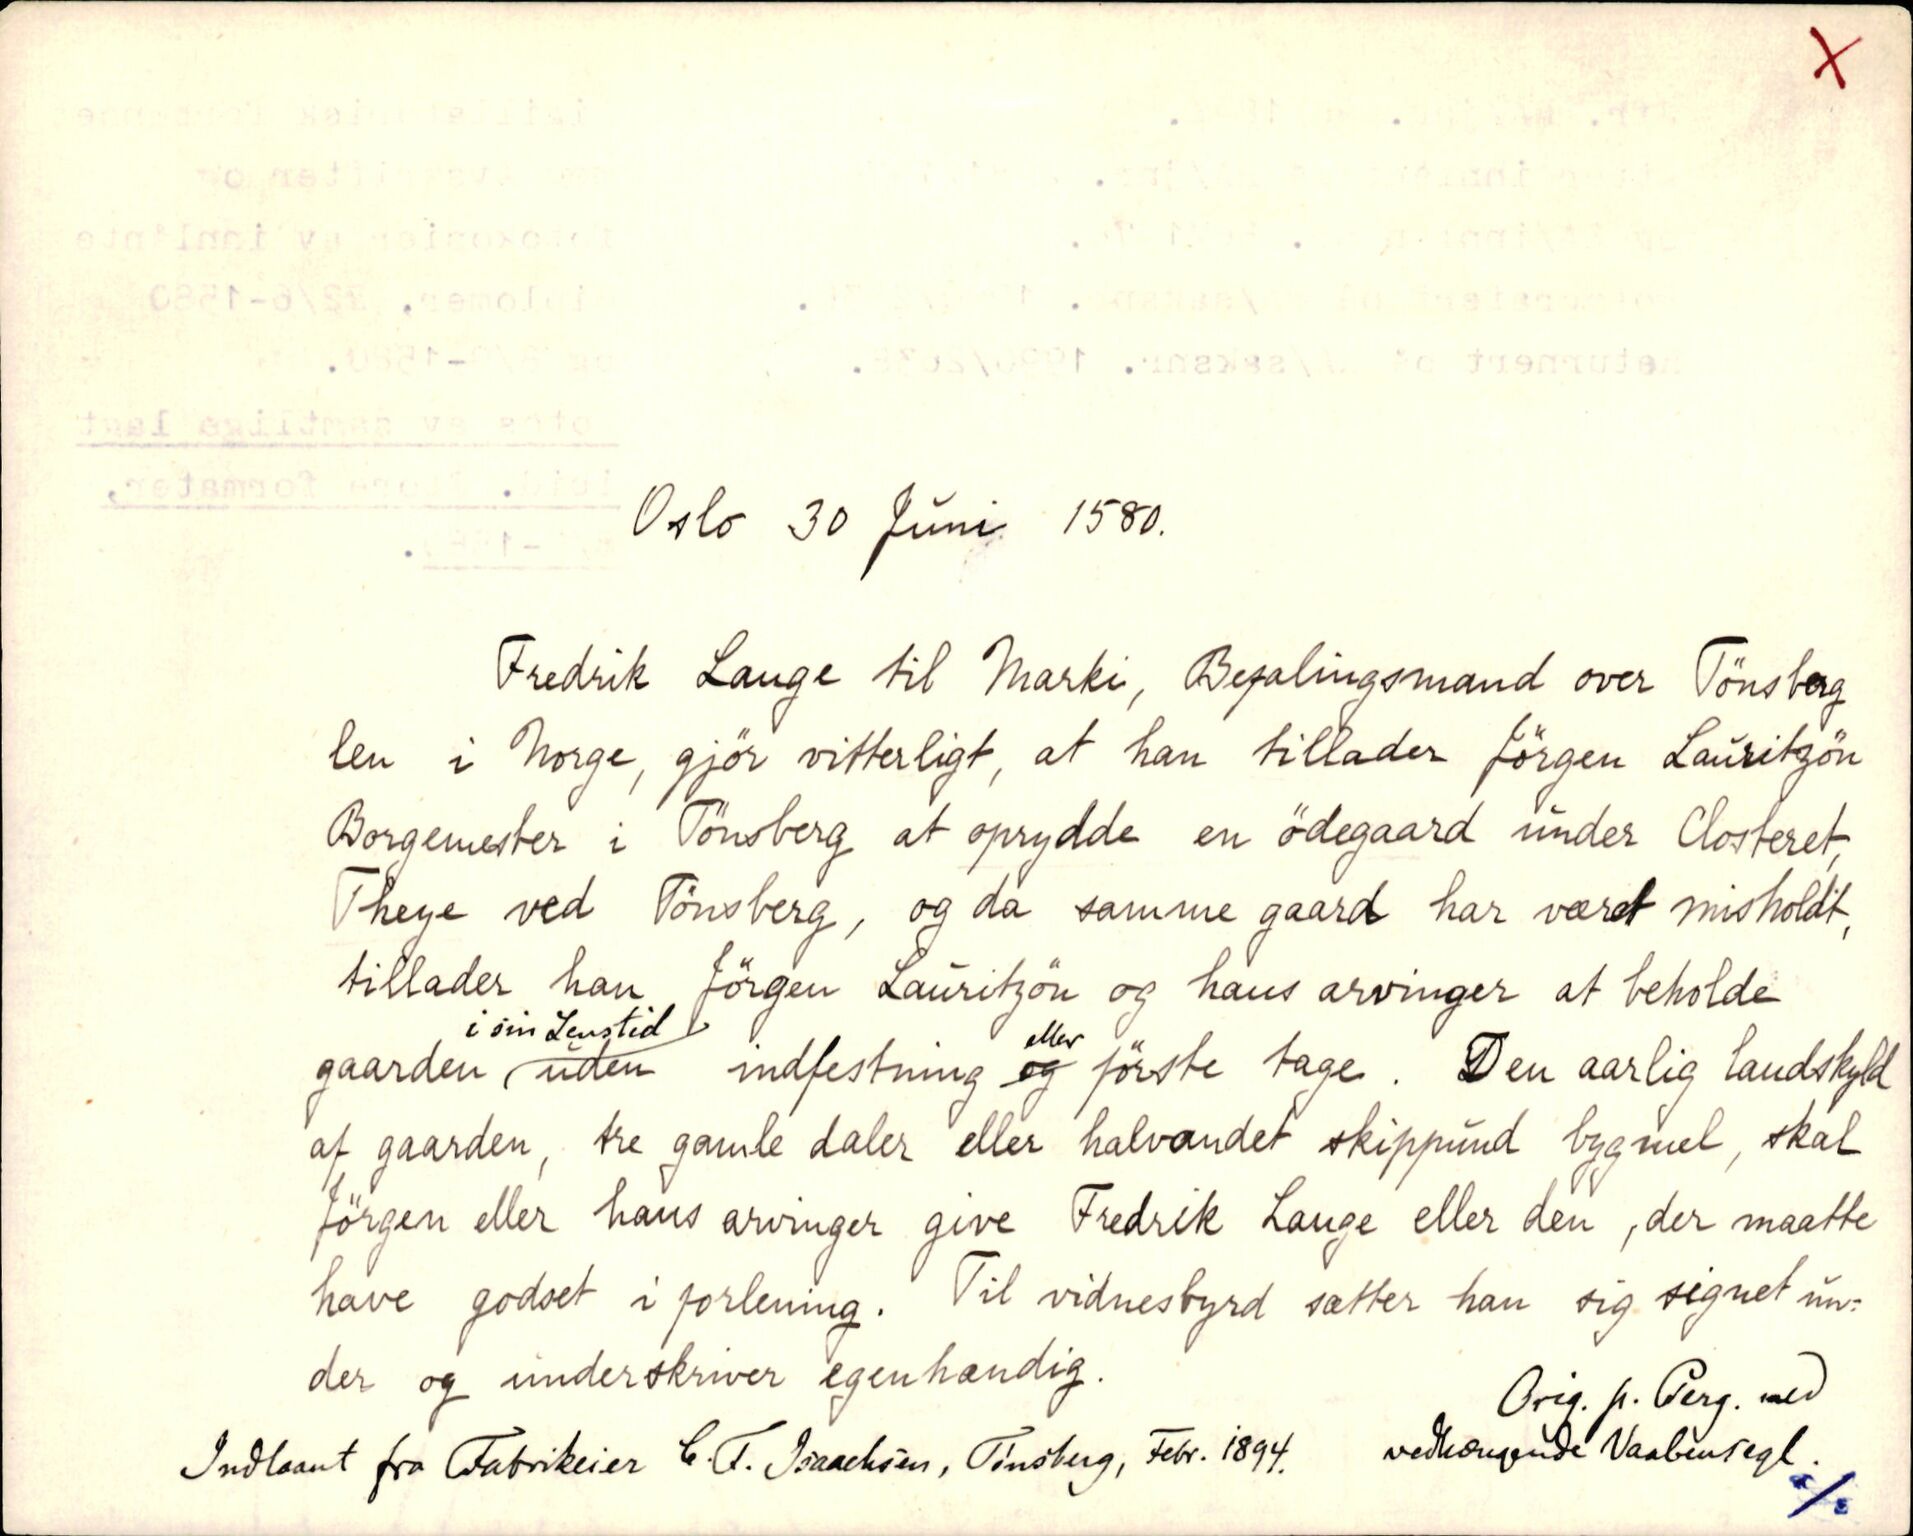 X
Oslo 30 Juni 1580.
Fredrik Lange til Marki, Befalingsmand over Tönsberg
len i Norge, gjör vitterligt, at han tillader Jörgen Lauritzön
Borgemester i Tönsberg at oprydde en ödegaard under Closteret,
Theye ved Tönsberg, og da samme gaard har været misholdt,
tillader han Jörgen Lauritzön og hans arvinger at beholde
i sin Lenstid eller
gaarden uden indfestning og förste tage. Den aarlig landskyld
af gaarden, tre gamle daler eller halvandet skippund bygmel, skal
Jörgen eller hans arvinger give Fredrik Lange eller den, der maatte
have godset i forlening. Til vidnesbyrd sætter han sig signet un-
der og underskriver egenhændig.
Orig. p. Perg. med
vedhængende Vaabensegl.
Indlaant fra Fabrikeier C. F. Isaachsen, Tönsberg, Febr. 1894.